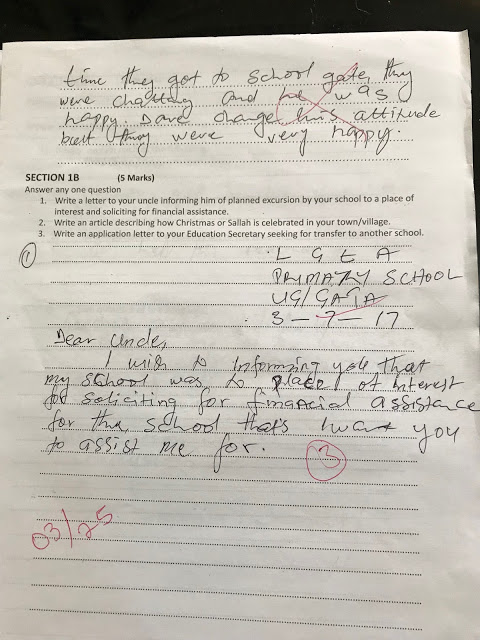 time they got to school gate, they
were chatting and he was
happy. Dave change his attitude
but they were very happy.
SECTION 1B (5 Marks)
Answer any one question
1. Write a letter to your uncle informing him of planned excursion by your school to a place of
interest and soliciting for financial assistance.
2. Write an article describing how Christmas or Sallah is celebrated in your town/village.
3. Write an application letter to your Education Secretary seeking for transfer to another school.
1
L G E A
PRIMARY SCHOOL
UG/GAJA
3-7-17
Dear Uncle,
I wish to informing you that
my school was to place of interest
for soliciting for financial assistance
for the school that's I want you
to assist me for.
3
03/25